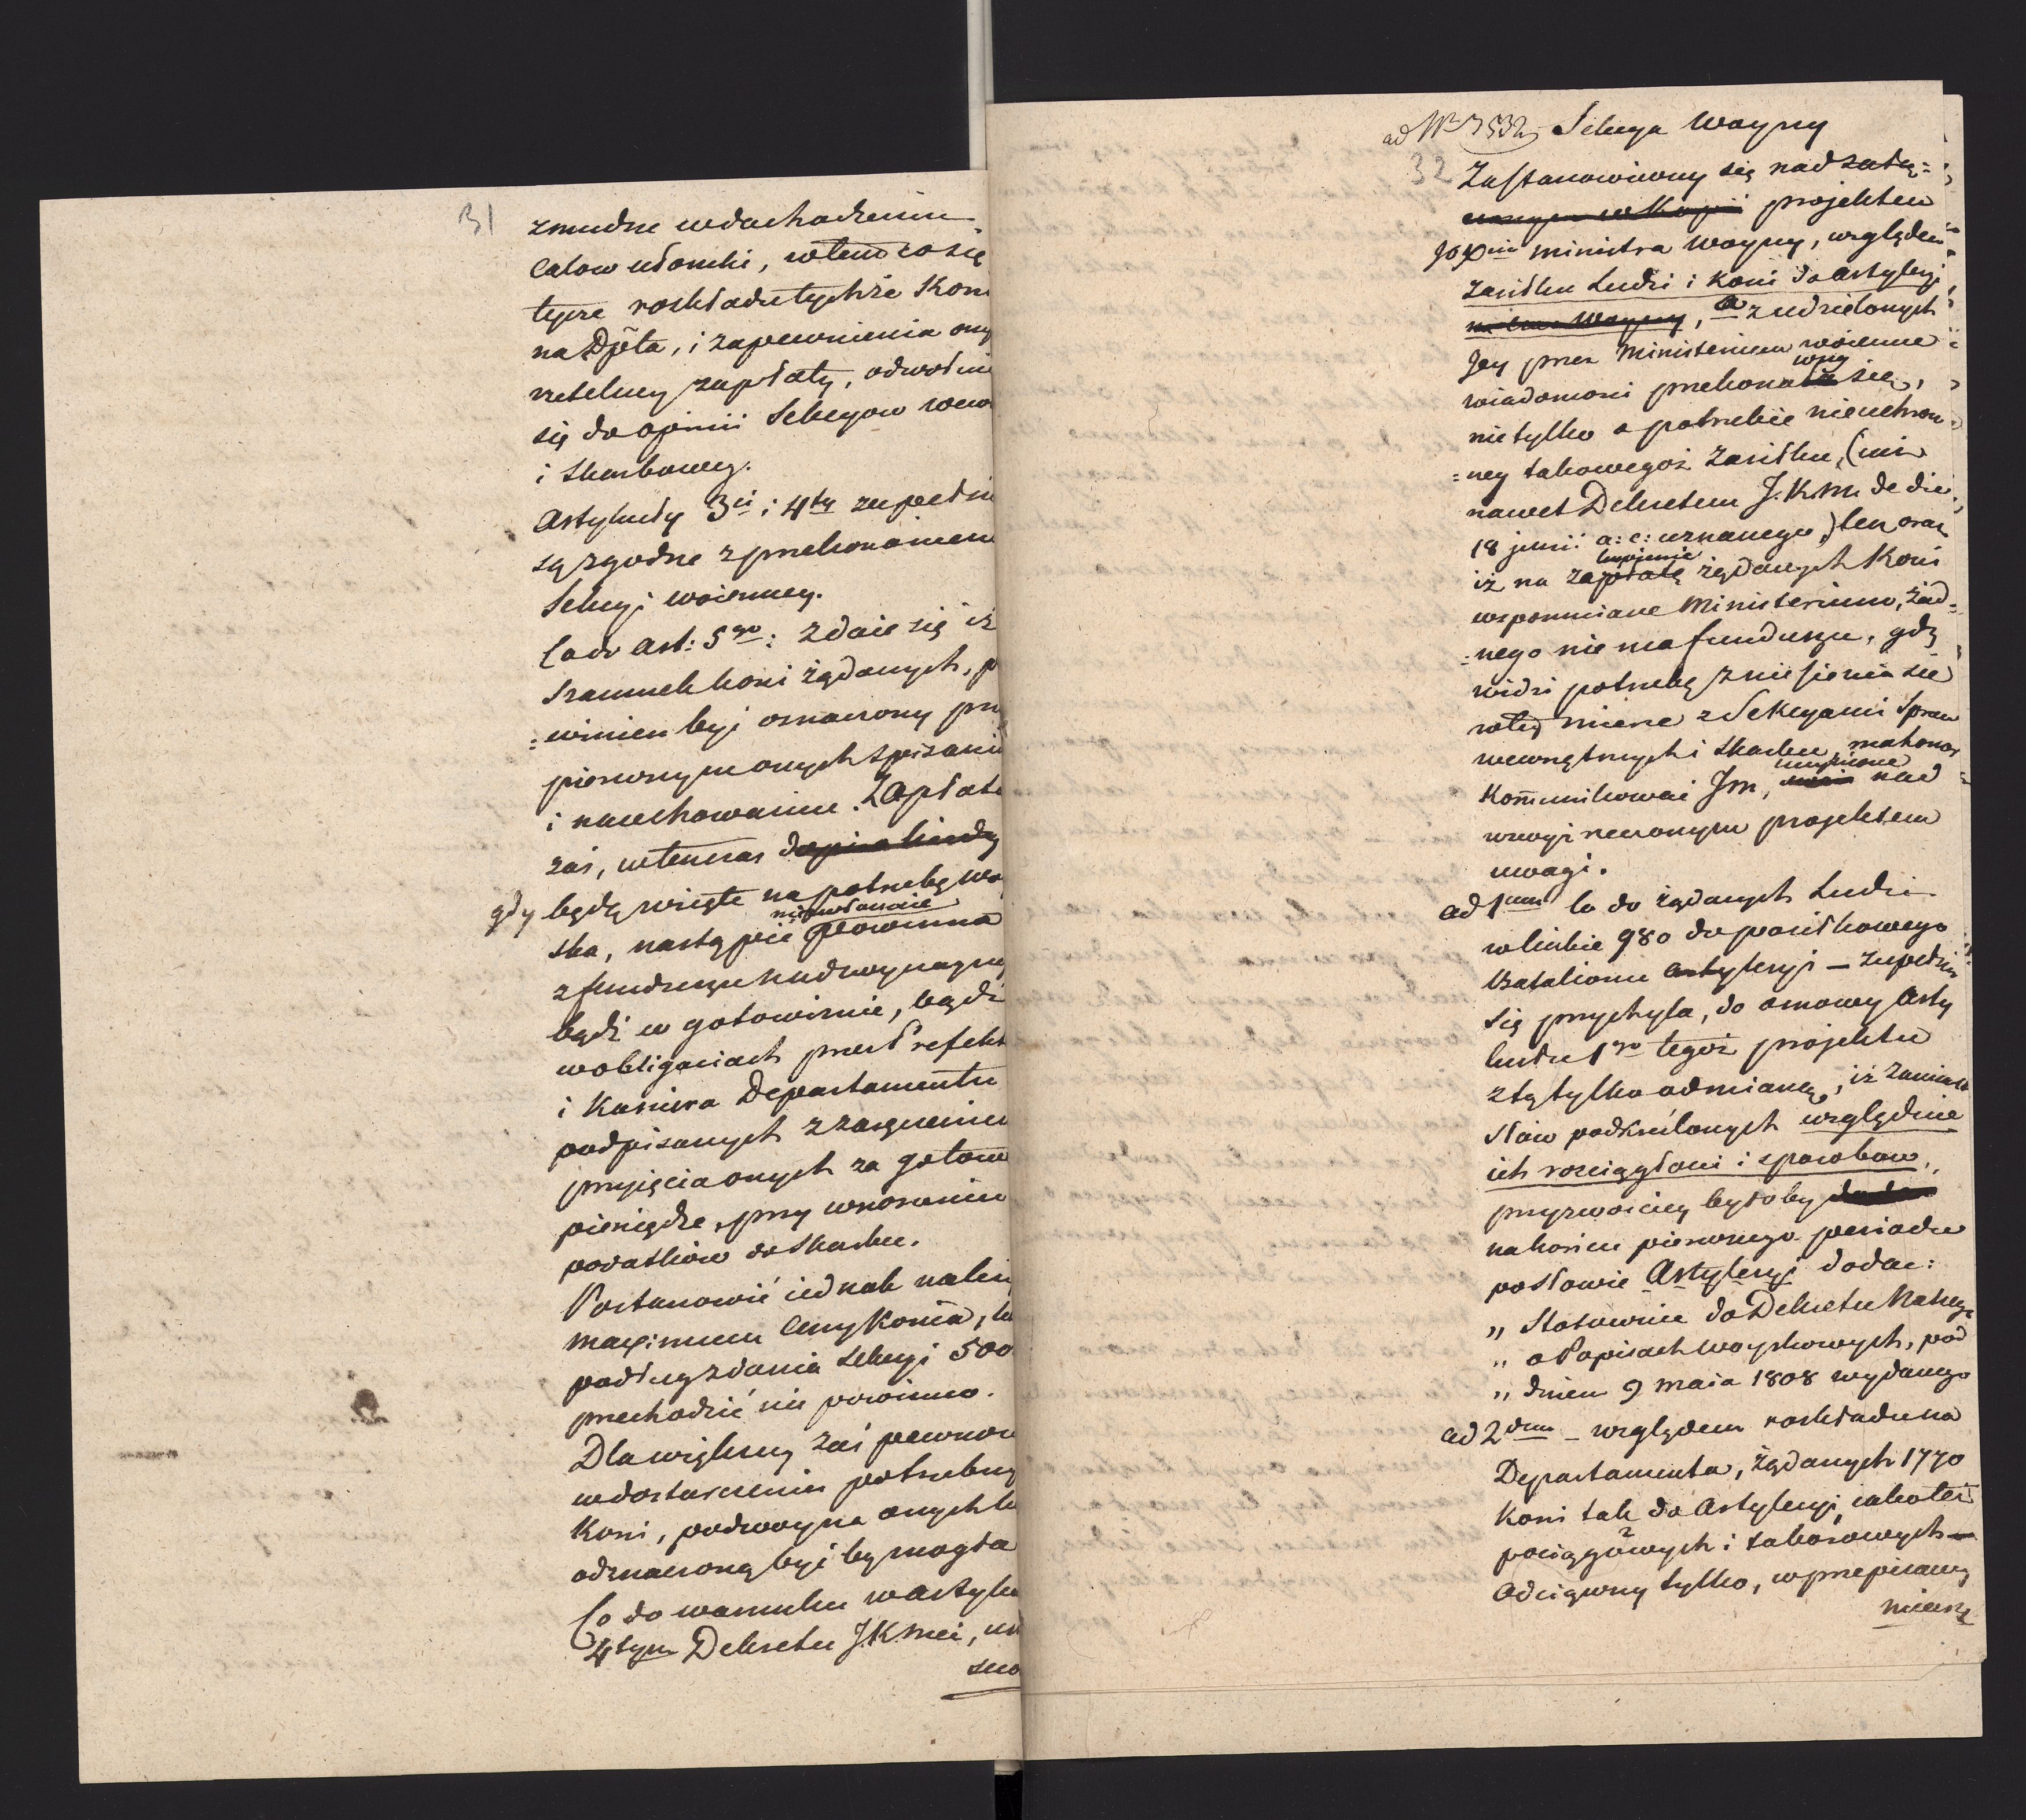 31
zmudne w dochodzeniu
Całow ułomki, w tem co się
tycze rozkładu tychże Kon
na Dpta, i zapewnienia ony
rzetelney zapłaty, odwołuie
się do opinii Sekcyow wew
i Skarbowey.
Artykuły 3ci i 4ty zupełni
są zgodne z przekonaniem
Sekcyi woienney.
Co do Art: 5go: zdaie się iż
Szacunek koni żądanych, p
=winien być oznaczony prz
pierwszym onych spisaniu
i nacechowaniu. Zapłata
zaś, wtenczas
gdy będą wzięte na potrzebę Wo
niezwłocznie
ska, nastąpić powinna
z funduszu nadzwyczayney
bądź w gotowiznie, bądź
w obligaciach przez Prefekt
i Kassiera Departamentu
podpisanych z zaręczeniem
przyięcia onych za gotowe
pieniądze, przy wnoszeniu
podatków do Skarbu.
Postanowić iednak należy
maximum Ceny Konia, kt
podług zdania Sekcyi 500
przechodzić nie powinno.
Dla większey zaś pewnosc
w dostarczeniu potrzebny
Koni, podwoyna onych li
oznaczoną być by mogła
Co do warunku w Artyku
4tym Dekretu JKMci, us
szcz
ad Nr 7532 Sekcya Woyny
32
Zastanowiwszy się nad
projektem
JO Xcia Ministra Woyny, względem
zasiłku Ludzi i Koni do Artyleryi
, a z udzielonych
Jey przez Ministerium woienne
wiadomości przekonawszy się,
nie tylko o potrzebie nieuchron
=ney takowegoż zasiłku, (iuż
nawet Dekretem J.K.M. de die
18 junii a: c: uznanego,) lecz oraz
kupienie
iż na zapłatę żądanych Koni
wspomniane Ministerium, żad=
=nego nie ma funduszu, gdy
widzi potrzebę zniesienia się
w tey mierze z Sekcyami Spraw
wewnętrznych i Skarbu, ma honor
Kommunikować Im, uczynione nad
wzwyż rzeczonym projektem
uwagi.
ad 1mum Co do żądanych Ludzi
w liczbie 980 do posiłkowego
Batalionu Artyleryi — zupełnie
się przychyla, do osnowy Arty
kułu 1go tegoż projektu
z tą tylko odmianą, iż zamiast
słów podkreślonych względnie
ich rozciągłości i sposobow,
przyzwoiciey byłoby
na końcu pierwszego periodu
po słowie Artyleryi dodać:
„ Stosownie do Dekretu Naszego
„ o Popisach Woyskowych, pod
„ dniem 9 Maia 1808 wydanego
ad 2dum — względem rozkładu na
Departamenta, żądanych 1770
Koni tak do Artyleryi, iako też
pociągowych i taborowych —
Odciąwszy tylko, w przepisaney
mierze